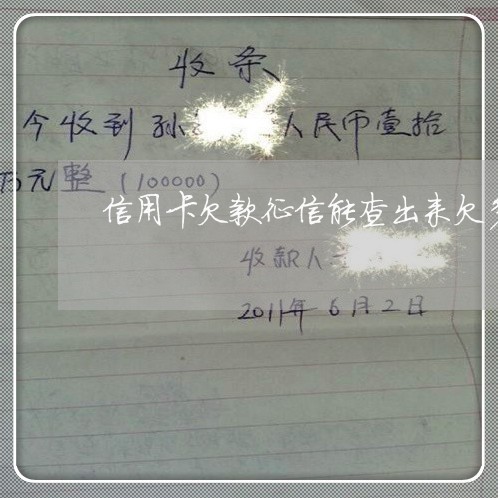 收条
今收到孙 人民币壹拾
万元整(100000)
信用卡欠款征信能查出来欠
收款人
2011年6月2日